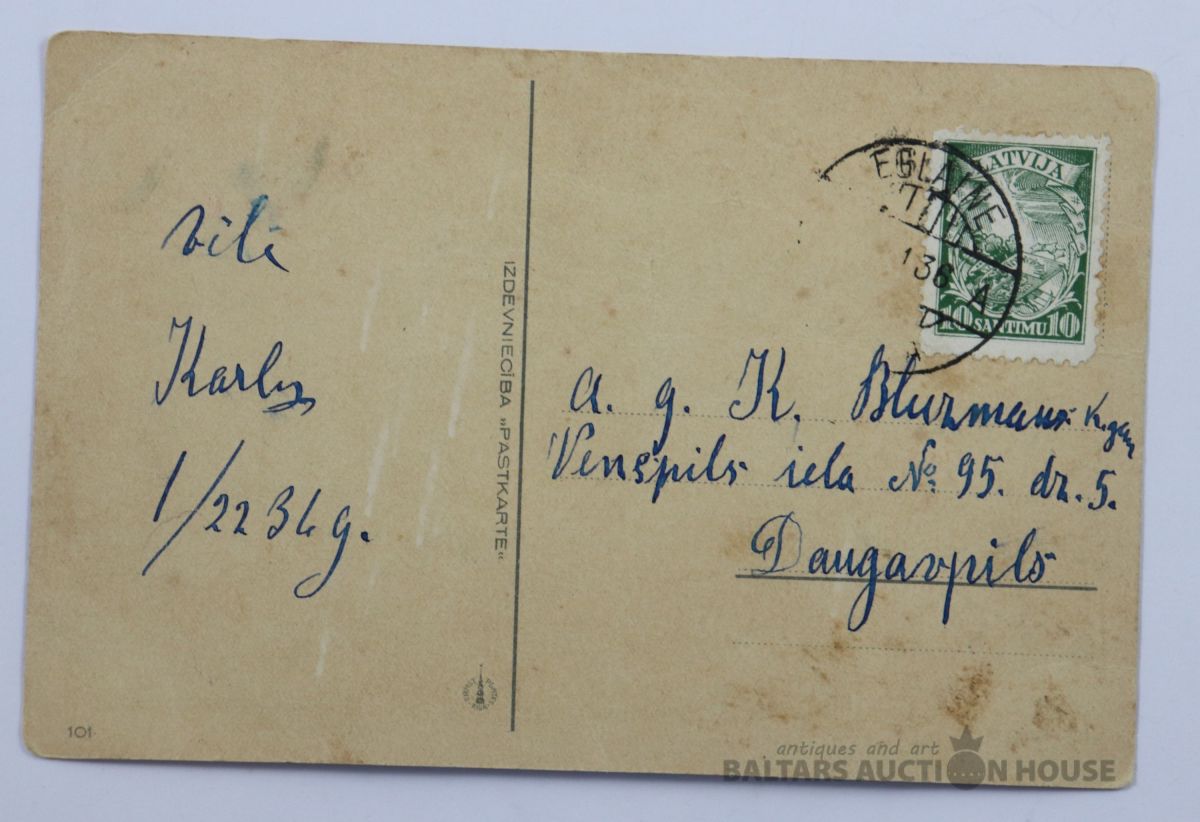 vili
Karlis
1/22 36 g.
IZDEVNIECĪBA „PASTKARTE“
101
EGLAINE
136 A
LATVIJA
10 SANTIMU 10
A. g. K. Bluzmans K. gan
Venspils iela № 95. dz. 5.
Daugavpils
antiques and art
BALTARS AUCTION HOUSE